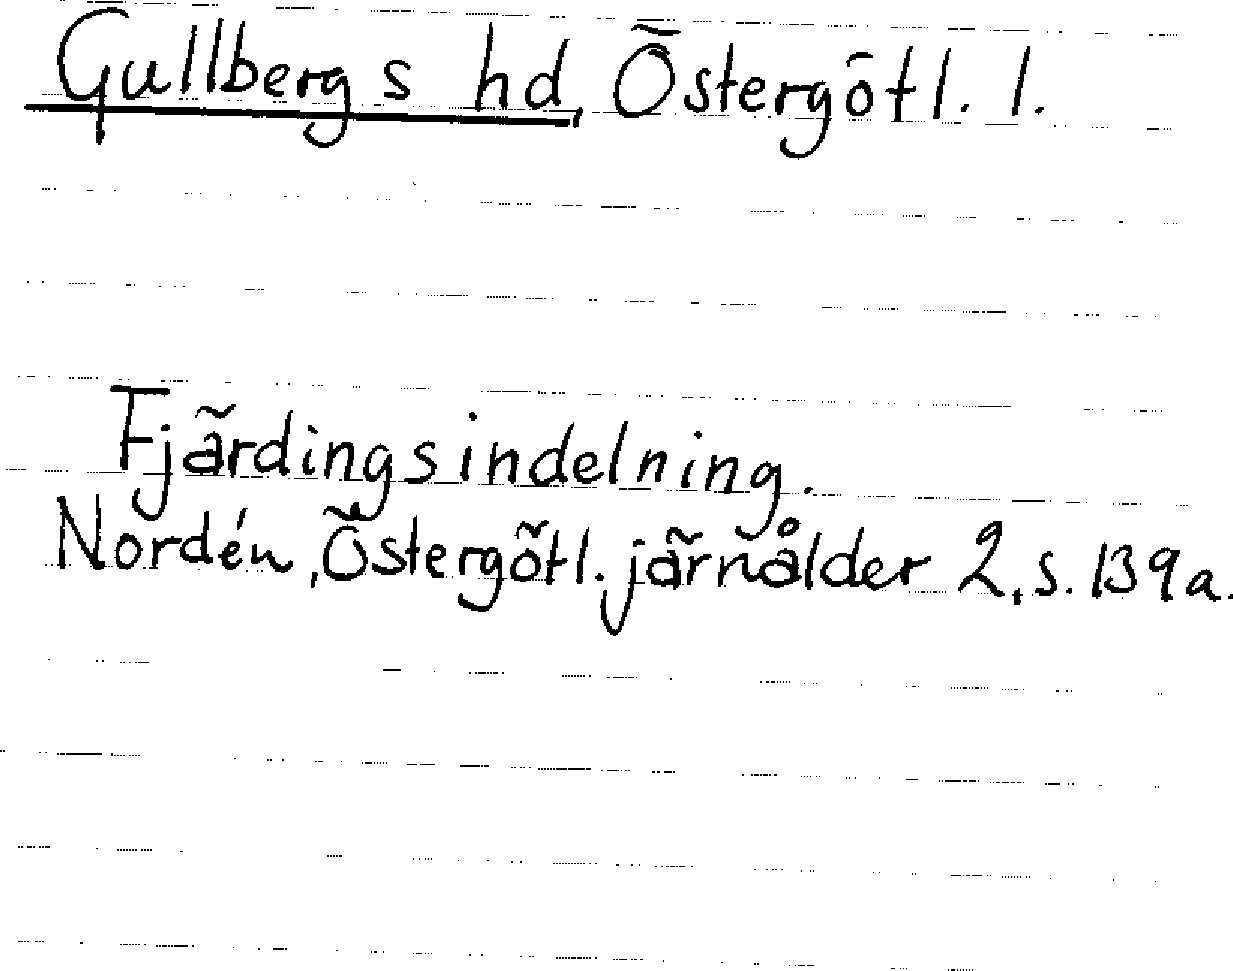 Gullbergs hd, Östergötl. l.
Fjärdingsindelning.
Nordén, Östergötl. järnålder 2, s. 139a.